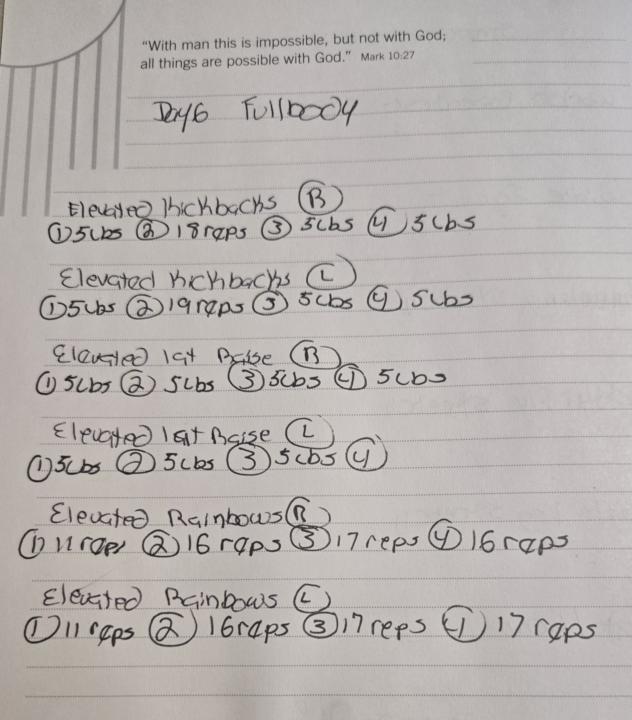 “With man this is impossible, but not with God;
all things are possible with God.” Mark 10:27
Day 6 Fullbody
Elevated Kickbacks Ⓡ
① 5Lbs ② 18 reps ③ 5Lbs ④ 5Lbs
Elevated Kickbacks Ⓛ
① 5Lbs ② 19 reps ③ 5Lbs ④ 5Lbs
Elevated lat Raise Ⓡ
① 5Lbs ② 5Lbs ③ 5Lbs ④ 5Lbs
Elevated lat Raise Ⓛ
① 5Lbs ② 5Lbs ③ 5Lbs ④
Elevated Rainbows Ⓡ
① 11 reps ② 16 reps ③ 17 reps ④ 16 reps
Elevated Rainbows Ⓛ
① 11 reps ② 16 reps ③ 17 reps ④ 17 reps